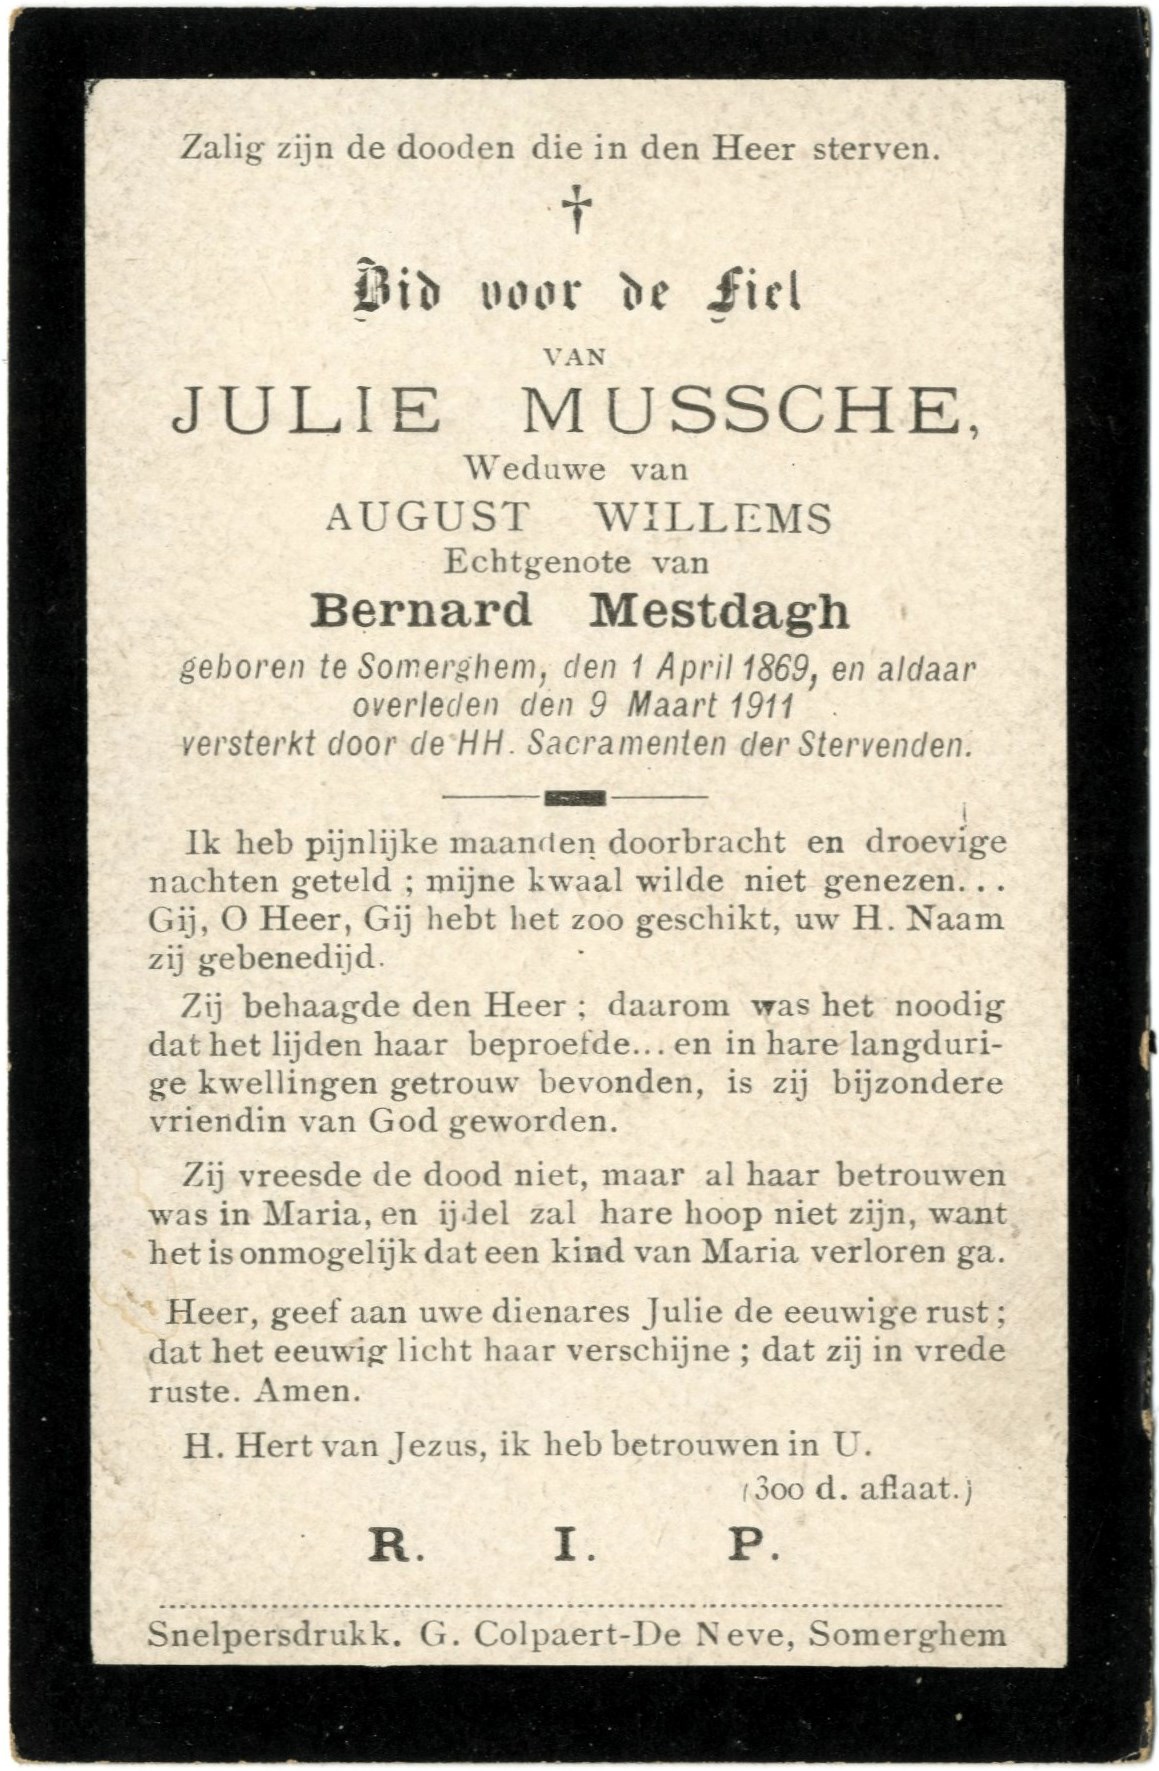 Zalig zijn de dooden die in den Heer sterven.
†
Bid voor de Ziel
VAN
JULIE MUSSCHE,
Weduwe van
AUGUST WILLEMS
Echtgenote van
Bernard Mestdagh
geboren te Somerghem, den 1 April 1869, en aldaar
overleden den 9 Maart 1911
versterkt door de HH. Sacramenten der Stervenden.
Ik heb pijnlijke maanden doorbracht en droevige
nachten geteld ; mijne kwaal wilde niet genezen...
Gij, O Heer, Gij hebt het zoo geschikt, uw H. Naam
zij gebenedijd.
Zij behaagde den Heer ; daarom was het noodig
dat het lijden haar beproefde... en in hare langduri-
ge kwellingen getrouw bevonden, is zij bijzondere
vriendin van God geworden.
Zij vreesde de dood niet, maar al haar betrouwen
was in Maria, en ijdel zal hare hoop niet zijn, want
het is onmogelijk dat een kind van Maria verloren ga.
Heer, geef aan uwe dienares Julie de eeuwige rust ;
dat het eeuwig licht haar verschijne ; dat zij in vrede
ruste. Amen.
H. Hert van Jezus, ik heb betrouwen in U.
(300 d. aflaat.)
R. I. P.
Snelpersdrukk. G. Colpaert-De Neve, Somerghem